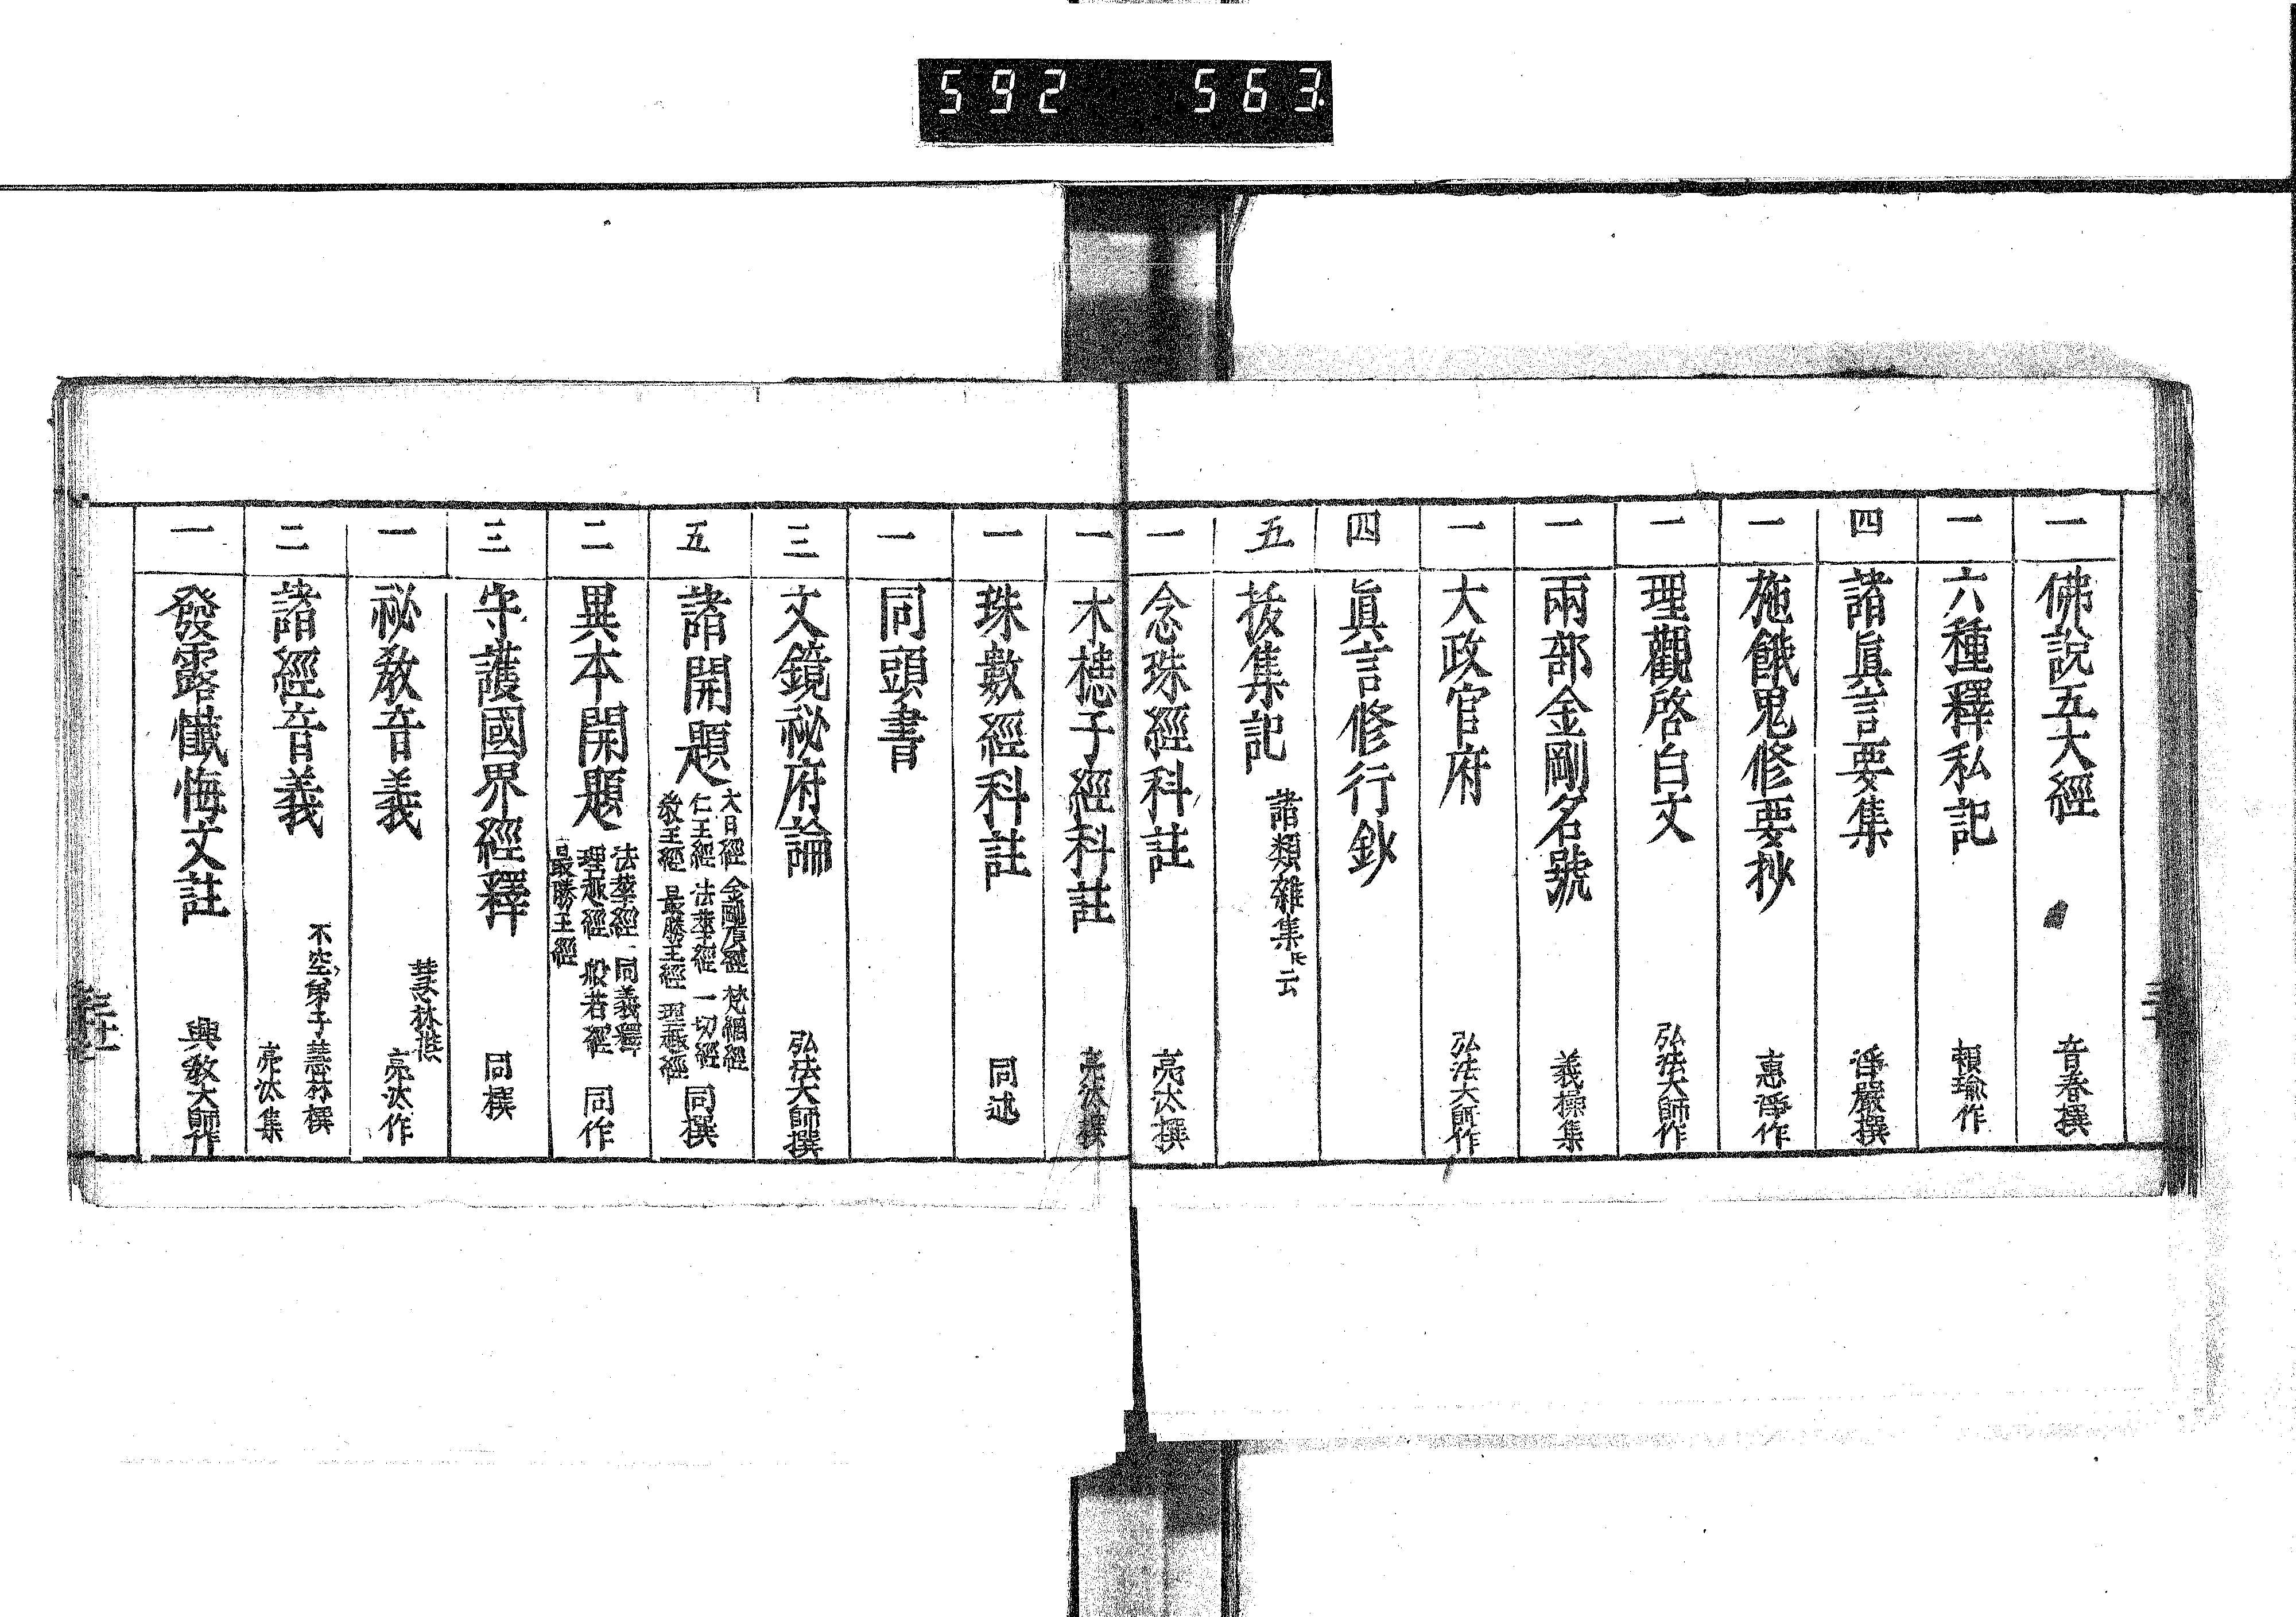 592 563
一 佛說五大經 音春撰
一 六種釋私記 頼瑜作
四 諸眞言要集 淨嚴撰
一 施餓鬼修要抄 惠淨作
一 理觀啓白文 弘法大師作
一 兩部金剛名號 義操集
一 大政官府 弘法大師作
四 眞言修行鈔
五 拔集記 諸類雜集 云
一 念珠經科註 亮汰撰
一 木槵子經科註 亮汰撰
一 珠數經科註 同述
一 同頭書
三 文鏡祕府論 弘法大師撰
五 諸開題 大日經 金剛頂經 梵網經 仁王經 法華經 一切經 教王經 最勝王經 理趣經 同撰
二 異本開題 法華經 同義釋 理趣經 般若經 最勝王經 同作
三 守護國界經釋 同撰
一 祕教音義 慧林撰 亮汰作
二 諸經音義 不空弟子慧林撰 亮汰集
一 發露懺悔文註 興教大師作